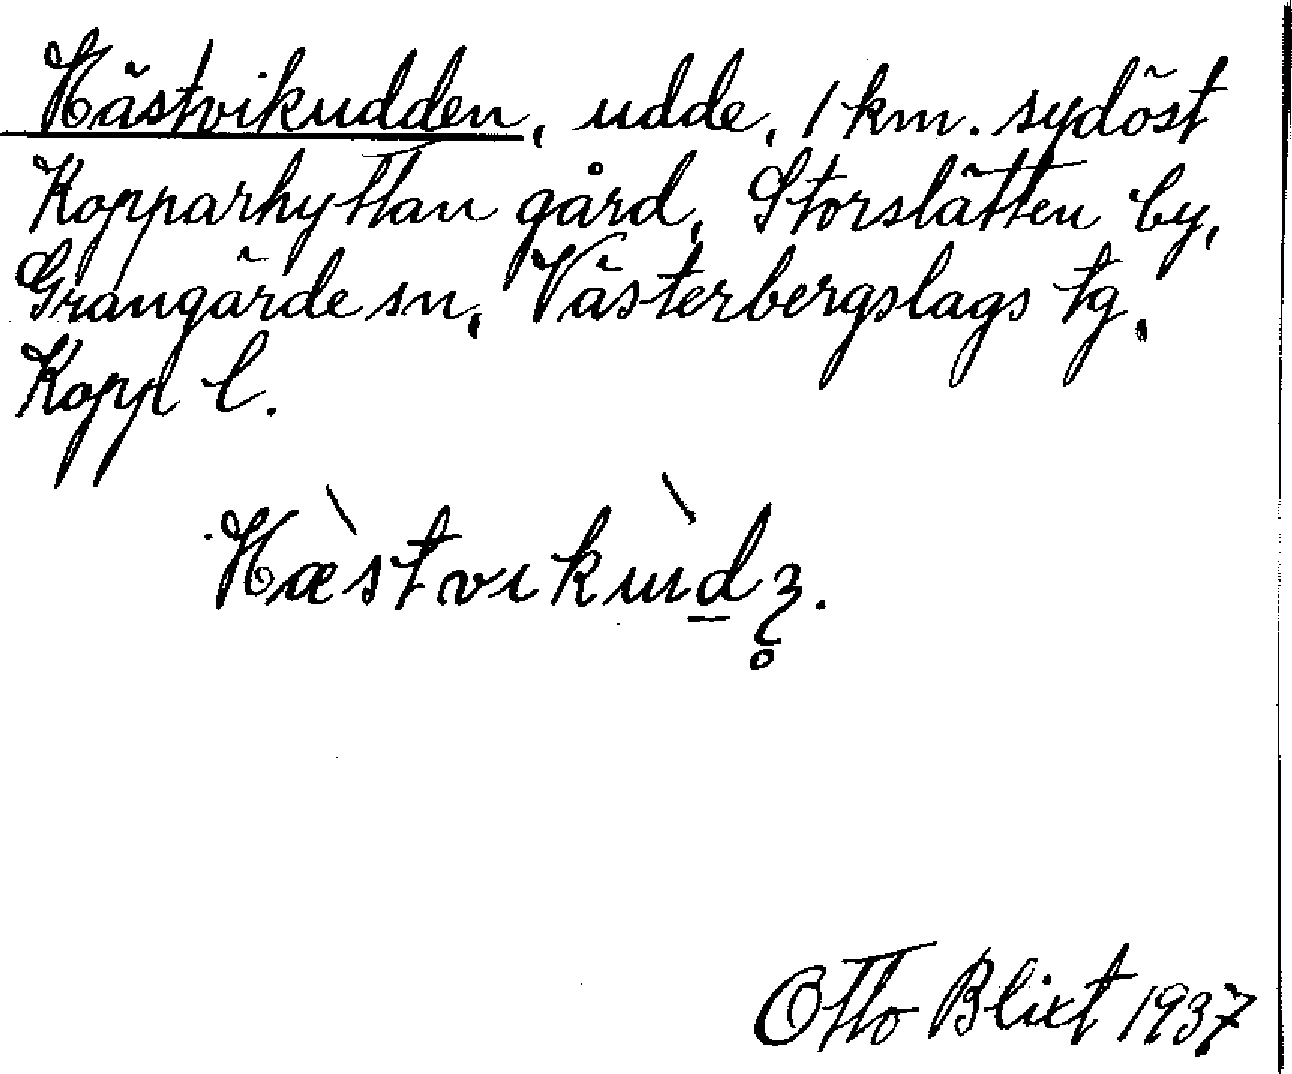 Hästvikudden, udde, 1 km. sydöst
Kopparhyttan gård, Storslätten by,
Grangärde sn, Västerbergslags tg,
Kopp l.
Hæ̀stvikùd̠ꝫ̥.
Otto Blixt 1937